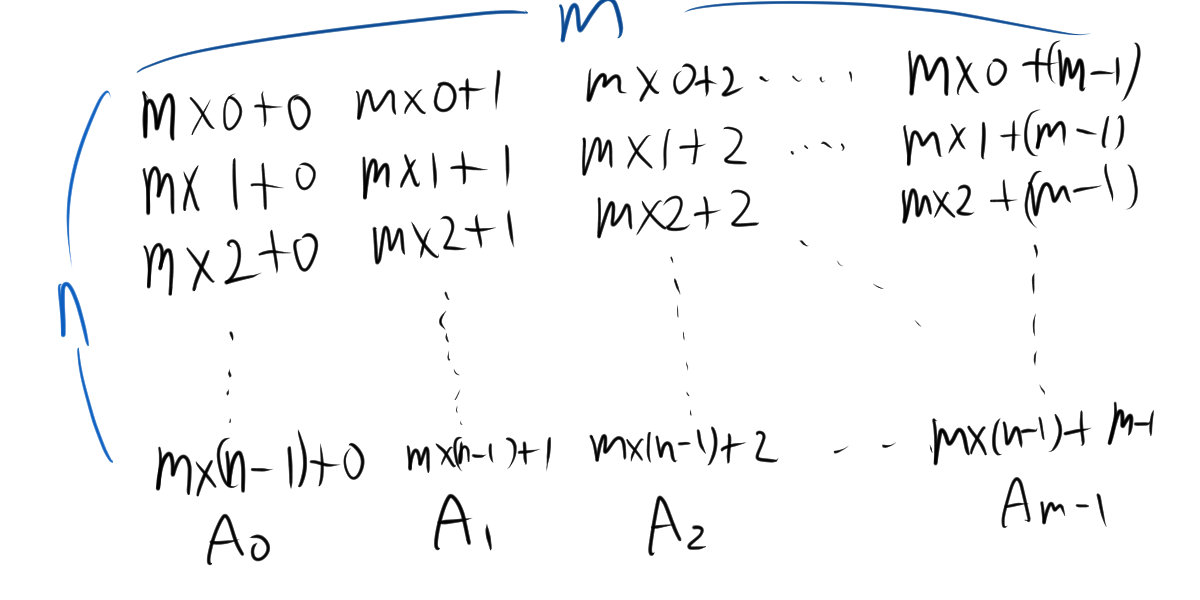 m
m×0+0 m×0+1 m×0+2 ..... m×0+(m-1)
m×1+0 m×1+1 m×1+2 ..... m×1+(m-1)
m×2+0 m×2+1 m×2+2 m×2+(m-1)
n
m×(n-1)+0 m×(n-1)+1 m×(n-1)+2 - - m×(n-1)+m-1
A₀ A₁ A₂ Aₘ₋₁